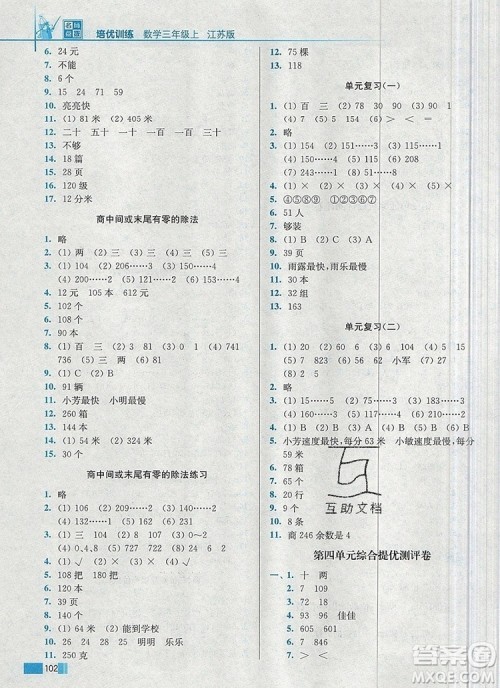 名师点拨 培优训练 数学三年级上 江苏版
6. 24 元
7. 不能
8. 6 个
9. 15 24 71 59
10. 亮亮快
11. (1) 81 米 (2) 405 米
12. 二十 五十 一十 一百 三十
13. 不够
14. 18 篇
15. 18 页
16. 120 级
17. 12 分米
商中间或末尾有零的除法
1. 略
2. (1) 两 (2) 三 (3) 三 (4) 三
3. (1) 104 (2) 206……3 (3) 150……4
(4) 200……2 (5) 106……2 (6) 110……1
4. 12 元 105 本 612 元
5. 102 个
6. 108 个
7. 90 本
8. (1) 2 3 4 (2) 8 9 (3) 0 (4) 741
736 (5) 三 两 (6) 81 80
9. (1) C (2) B (3) C
10. 91 辆
11. 小芳最快 小明最慢
12. 260 箱
13. 110 下
14. 66 米
15. 30 元
商中间或末尾有零的除法练习
1. 略
2. (1) × (2) × (3) × (4) √
3. (1) 7、8、9 (2) 815 8 (3) 0～2
(4) 0、4、8 (5) 1 (6) 4 2
4. (1) C (2) A (3) B
5. 108 把 180 把
6. 218 把
7. 39 页
8. 140 个
9. (1) 64 米 (2) 能到学校
10. 26 24 28 25 明明 乐乐
11. 250 克
12. 75 棵
13. 118
单元复习(一)
1. (1) 百 三 (2) 78 30 90 (3) 百
(4) 三 (5) 7 8 (6) ＞ ＜ ＞
2. 略
3. (1) 154 (2) 151……5 (3) 117……3
(4) 89……1 (5) 60……1 (6) 151……1
(7) 243……1 (8) 31……5 (9) 130……3
4. (1) × (2) × (3) √ (4) ×
5. ④⑤⑧⑨ ①②③⑥⑦
6. 51 人
7. 够装
8. (1) B (2) C (3) A (4) B
9. 15 页
10. 雨露最快，雨乐最慢
11. 30 本
12. 32 组
13. 163
单元复习(二)
1. (1) 20 (2) 8 85 (3) 54 54 (4) 三
(5) 7 829 (6) 62 56 小军 (7) 86
2. 略
3. (1) 215……2 (2) 66……7 (3) 183……3
(4) 150……5 (5) 88……2 (6) 167……3
4. (1) C (2) A (3) A (4) C (5) B (6) B
5. 小芳速度最快，每分 63 米 小敏速度最慢，每分
59 米
6. 78 箱
7. 65 个
8. 20 行
9. 6 个
10. 8 条
11. 商 246 余数是 4
第四单元综合提优测评卷
一、1. 十 两
2. 30
3. 9
4. 110
5. 93 94 佳佳
6. 55 605
7. 923
8. ＝ ＞ ＜ ＞
互助文档
102
答案圈
MXQE.COM